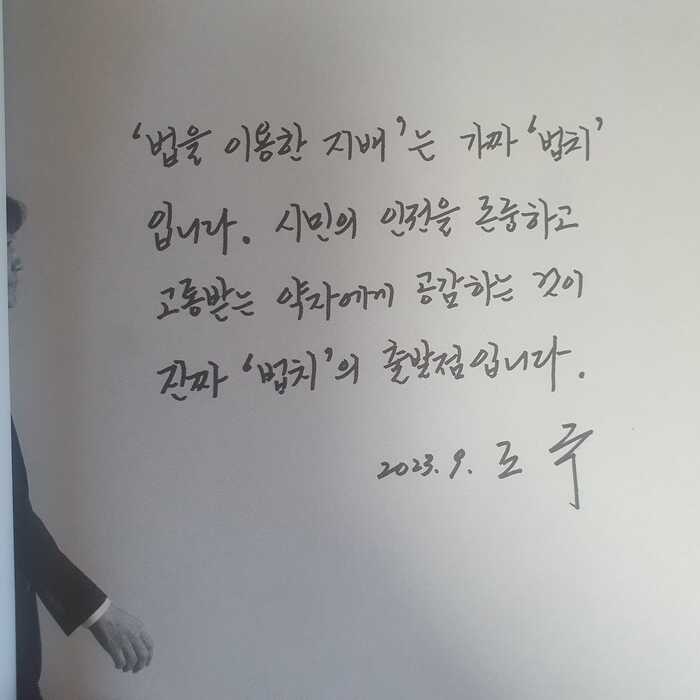 '법을 이용한 지배'는 가짜 '법치'
입니다. 시민의 인권을 존중하고
고통받는 약자에게 공감하는 것이
진짜 '법치'의 출발점입니다.
2023. 9. 조 국